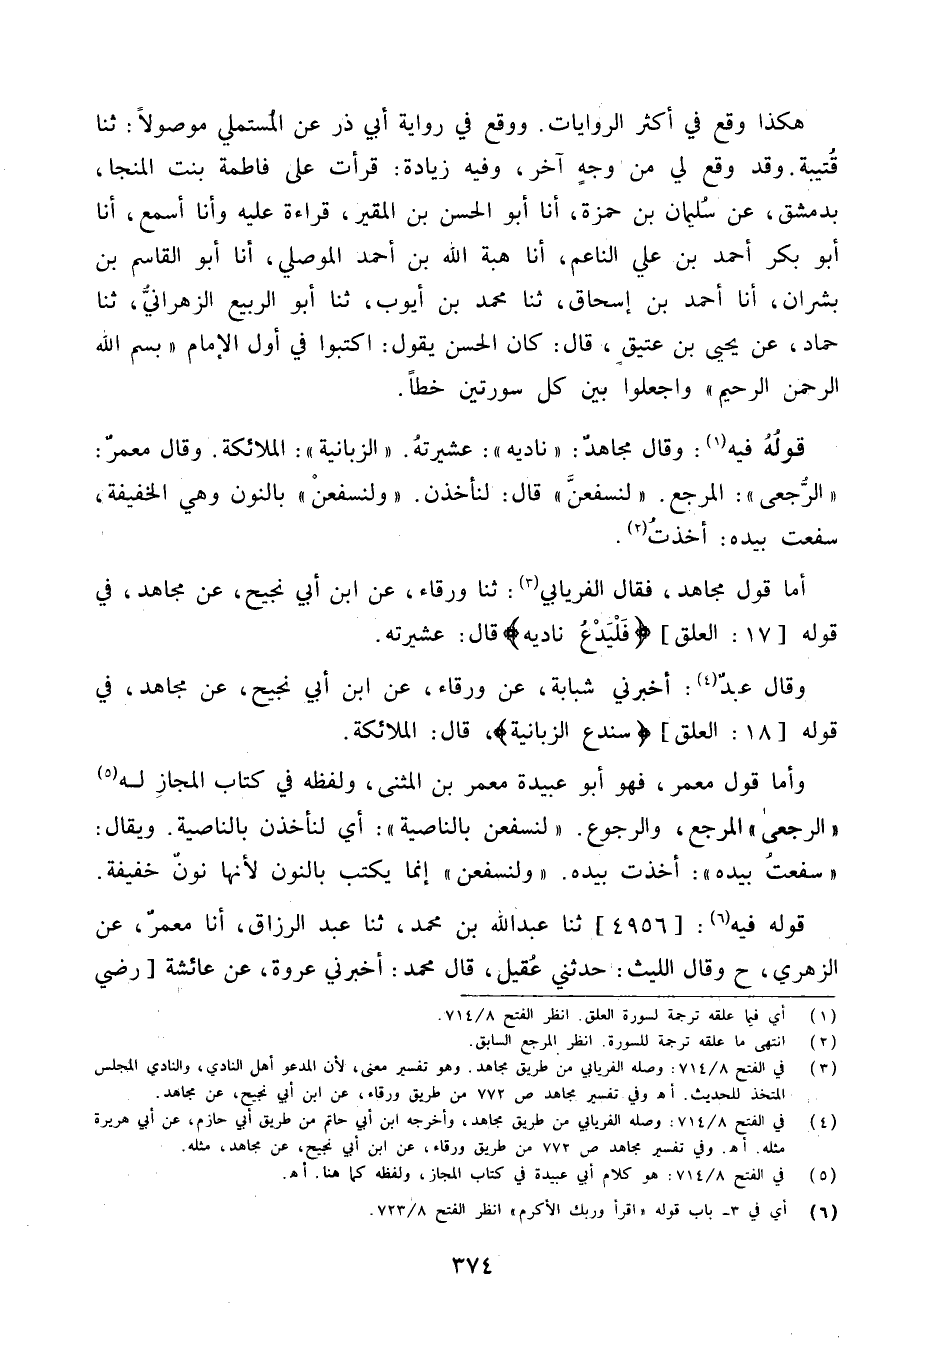 هكذا وقع في أكثر الروايات. ووقع في رواية أبي ذر عن المُستملي موصولاً: ثنا
قُتيبة. وقد وقع لي من وجهٍ آخر، وفيه زيادة: قرأت على فاطمة بنت المنجا،
بدمشق، عن سُليمان بن حمزة، أنا أبو الحسن بن المقير، قراءة عليه وأنا أسمع، أنا
أبو بكر أحمد بن علي الناعم، أنا هبة الله بن أحمد الموصلي، أنا أبو القاسم بن
بشران، أنا أحمد بن إسحاق، ثنا محمد بن أيوب، ثنا أبو الربيع الزهرانيُّ، ثنا
حماد، عن يحيى بن عتيقٍ، قال: كان الحسن يقول: اكتبوا في أول الإمام « بسم الله
الرحمن الرحيم» واجعلوا بين كل سورتين خطاً.
قولُهُ فيه(١): وقال مجاهدٌ: « ناديه»: عشيرتهُ. « الزبانية»: الملائكة. وقال معمرٌ:
« الرُّجعى»: المرجع. « لنسفعنَّ» قال: لنأخذن. « ولنسفعنْ» بالنون وهي الخفيفة،
سفعت بيده: أخذتُ(٢).
أما قول مجاهد، فقال الفريابي(٣): ثنا ورقاء، عن ابن أبي نجيح، عن مجاهد، في
قوله [ ١٧ : العلق] ﴿فَلْيَدْعُ ناديه﴾ قال: عشيرته.
وقال عبدٌ(٤): أخبرني شبابة، عن ورقاء، عن ابن أبي نجيح، عن مجاهد، في
قوله [ ١٨ : العلق] ﴿سندع الزبانية﴾، قال: الملائكة.
وأما قول معمر، فهو أبو عبيدة معمر بن المثنى، ولفظه في كتاب المجازِ لـه(٥)
« الرجعى» المرجع، والرجوع. « لنسفعن بالناصية»: أي لنأخذن بالناصية. ويقال:
« سفعتُ بيده»: أخذت بيده. « ولنسفعن» إنما يكتب بالنون لأنها نونٌ خفيفة.
قوله فيه(٦): [ ٤٩٥٦] ثنا عبدالله بن محمد، ثنا عبد الرزاق، أنا معمرٌ، عن
الزهري، ح وقال الليث: حدثني عُقيل، قال محمد: أخبرني عروة، عن عائشة [ رضي
(١) أي فيما علقه ترجمة لسورة العلق. انظر الفتح ٨/ ٧١٤.
(٢) انتهى ما علقه ترجمة للسورة. انظر المرجع السابق.
(٣) في الفتح ٨/ ٧١٤: وصله الفريابي من طريق مجاهد. وهو تفسير معنى، لأن المدعو أهل النادي، والنادي المجلس
المتخذ للحديث. أ هـ وفي تفسير مجاهد ص ٧٧٢ من طريق ورقاء، عن ابن أبي نجيح، عن مجاهد.
(٤) في الفتح ٨/ ٧١٤: وصله الفريابي من طريق مجاهد، وأخرجه ابن أبي حاتم من طريق أبي حازم، عن أبي هريرة
مثله. أ هـ. وفي تفسير مجاهد ص ٧٧٢ من طريق ورقاء، عن ابن أبي نجيح، عن مجاهد، مثله.
(٥) في الفتح ٨/ ٧١٤: هو كلام أبي عبيدة في كتاب المجاز، ولفظه كما هنا. أ هـ.
(٦) أي في ٣- باب قوله «اقرأ وربك الأكرم» انظر الفتح ٨/ ٧٢٣.
٣٧٤